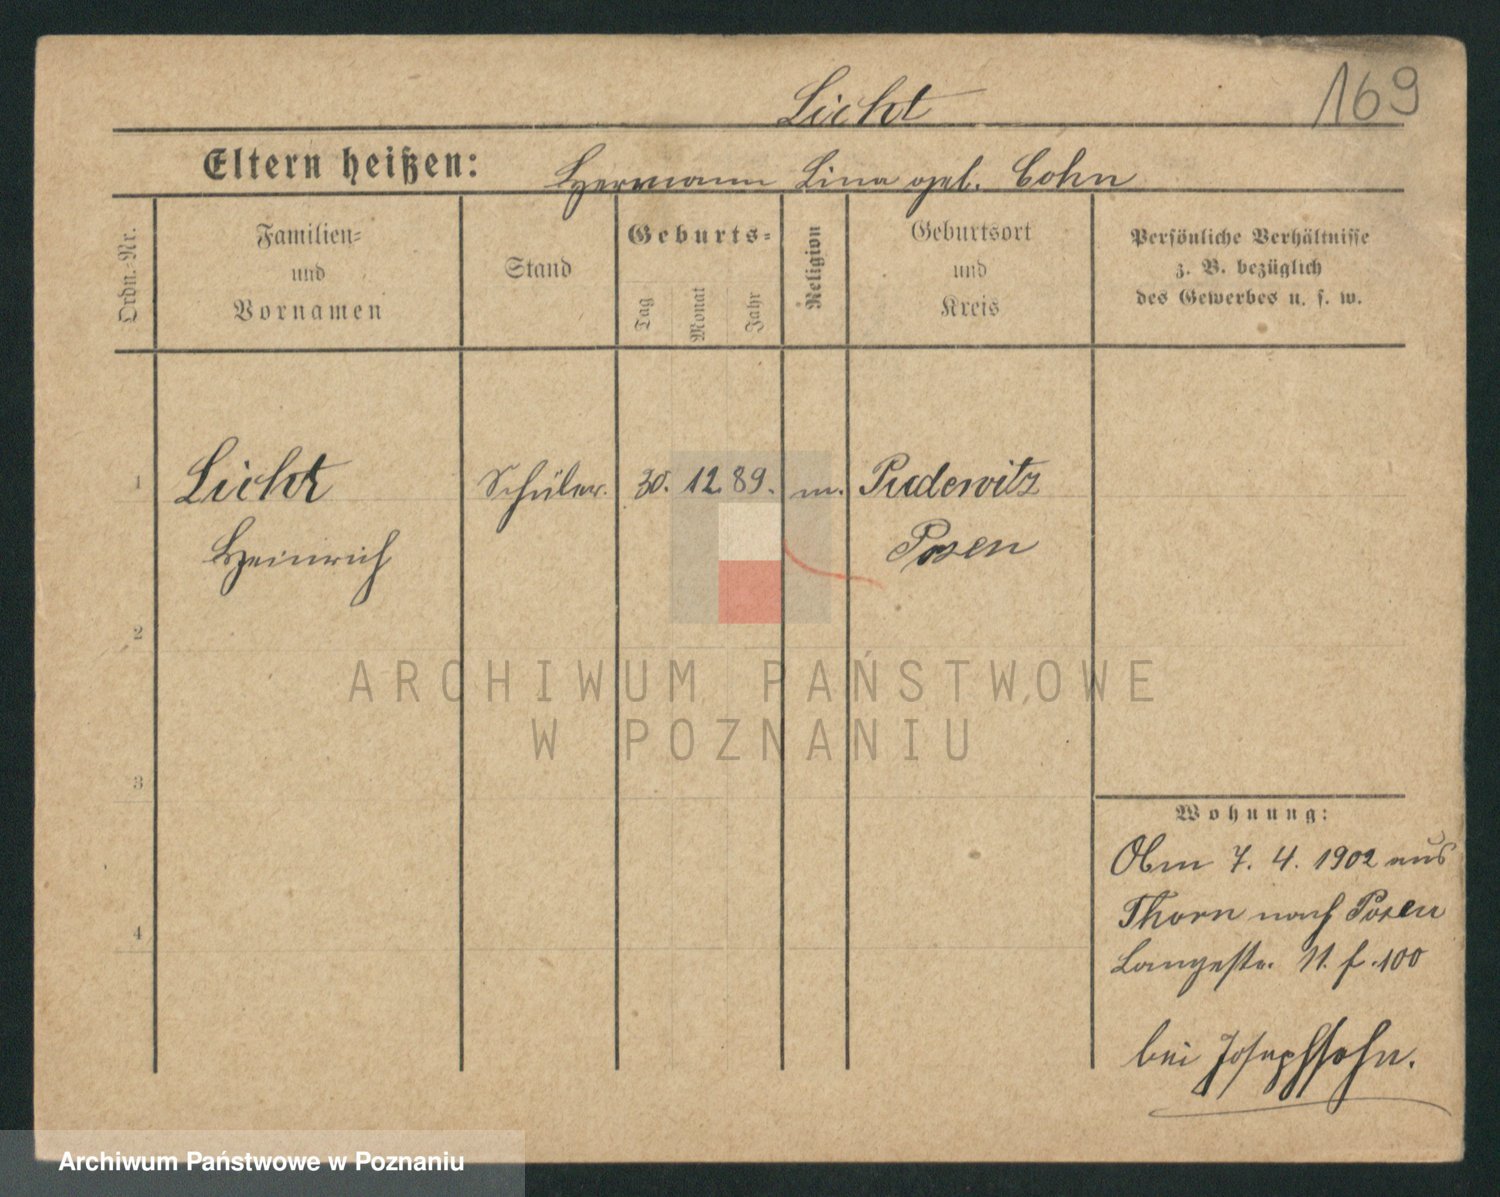 Licht
169
Eltern heißen: Hermann Lina geb. Cohn
Ordn.-Nr.
Familien=
und
Vornamen
Stand
Geburts=
Tag
Monat
Jahr
Religion
Geburtsort
und
Kreis
Persönliche Verhältnisse
z. B. bezüglich
des Gewerbes u. s. w.
1 Licht Schüler. 30. 12. 89. m. Pudewitz
Heinrich Posen
2
3
4
Wohnung:
Obm 7. 4. 1902 aus
Thorn nach Posen
Langestr. 11. f. 100
bei Josephsohn.
ARCHIWUM PAŃSTWOWE
W POZNANIU
Archiwum Państwowe w Poznaniu